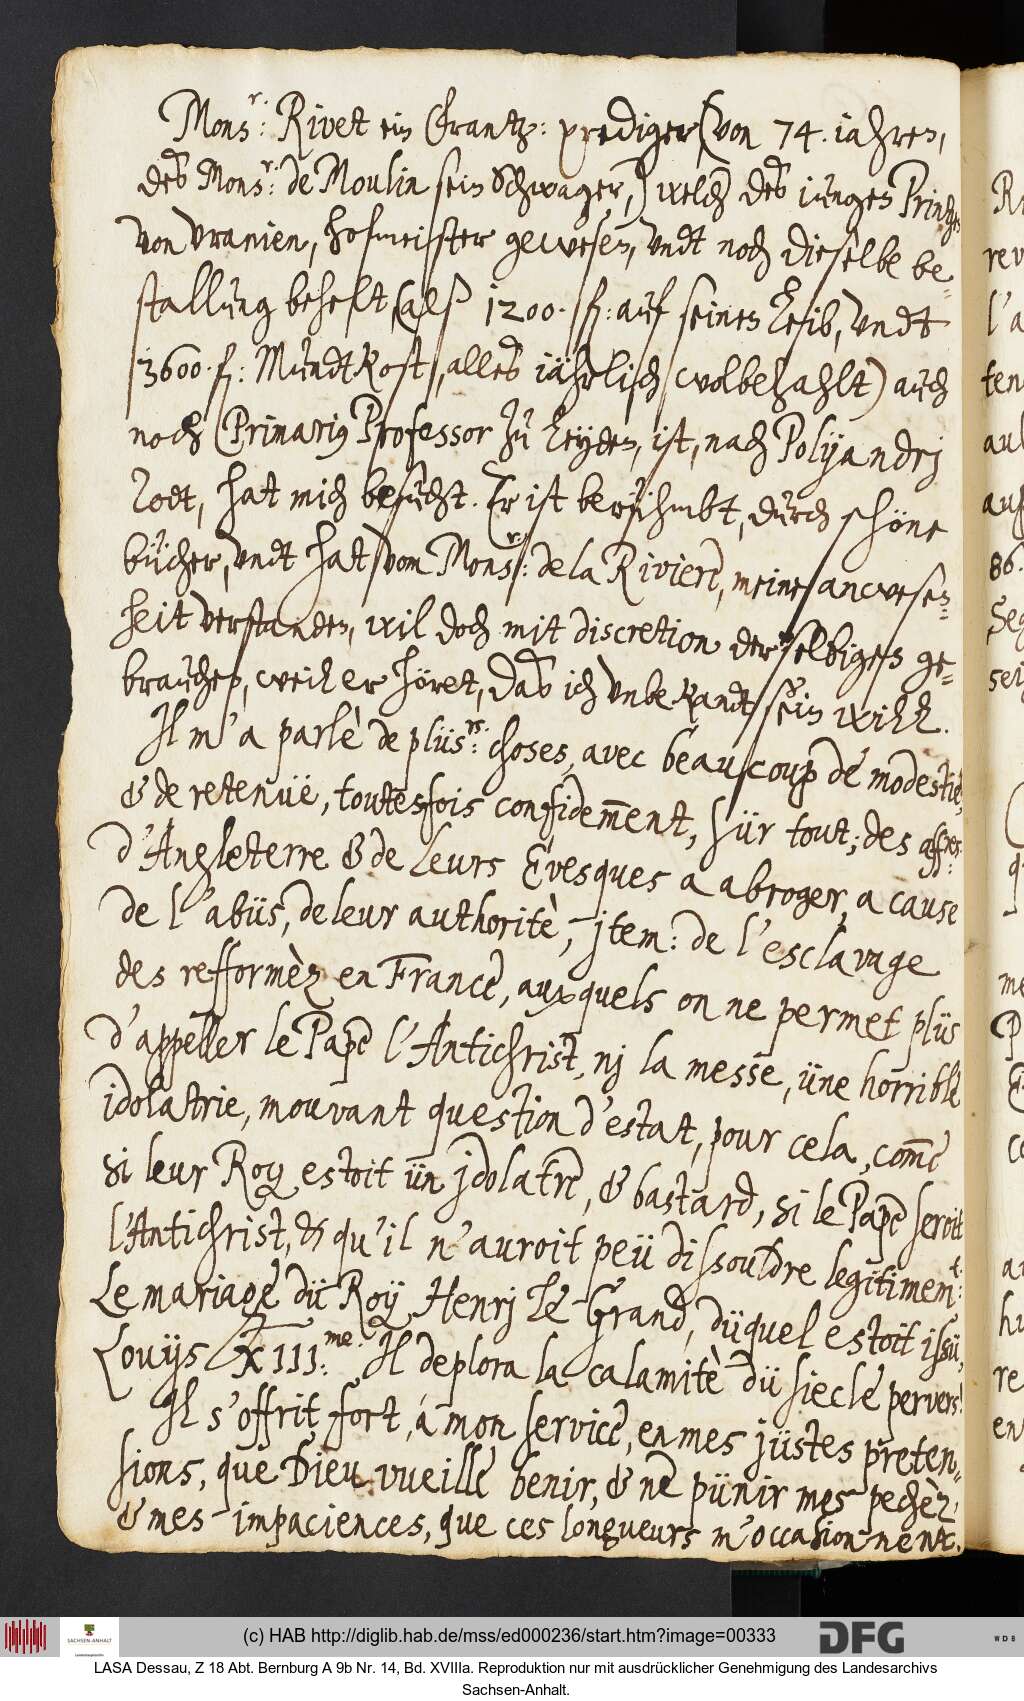 Mons.r: Rivet ein Frantz: prediger (von 74. iahren,
des Mons.r: de Moulin sein Schwager,) welcher des iungen Printzen
von Vranien, hofmeister gewesen, vndt noch dieselbe be¬
stallung behelt (als 1200. f: auf seinen Leib, vndt
3600. f: MundtKost, alles iährlich wolbezahlt) auch
noch Primarius Professor zu Leyden, ist, nach Polyandrj
Todt, hat mich besucht. Er ist berühmbt, durch schöne
bücher, vndt hat vom Mons.r: de la Riviere, meine anwesen¬
heit verstanden, will doch mit discretion derselbigen ge¬
brauchen, weil er höret, das ich vnbekandt sein will.
Il m'a parlè de plüs.rs: choses, avec beaucoup de modestie,
& de retenuë, toutesfois confidem̄ent, sür tout; des aff.res:
d'Angleterre & de leurs Evesques a abroger, a cause
de l'abüs, de leur authoritè, jtem: de l'esclavage
des refformèz en France, auxquels on ne permet plüs
d'appeller le Pape l'Antichrist, nj la messe, üne horrible
idolatrie, mouvant question d'estat, pour cela, com̄e
si leur Roy estoit ün jdolatre, & bastard, si le Pape seroit
l'Antichrist, & qu'il n'auroit peü dissouldre legitimem.t:
le mariage dü Roÿ Henrj le Grand, düquel estoit issü,
Louÿs XIII.me: Il deplora la calamitè dü siecle pervers!
Il s'offrit fort, a mon service, en mes jüstes preten¬
sions, que Dieu vueille benir, & ne pünir mes pechèz,
& mes impaciences, que ces longueurs m'occasionnent.
(c) HAB http://diglib.hab.de/mss/ed000236/start.htm?image=00333
SACHSEN-ANHALT
DFG
WDB
LASA Dessau, Z 18 Abt. Bernburg A 9b Nr. 14, Bd. XVIIIa. Reproduktion nur mit ausdrücklicher Genehmigung des Landesarchivs
Sachsen-Anhalt.